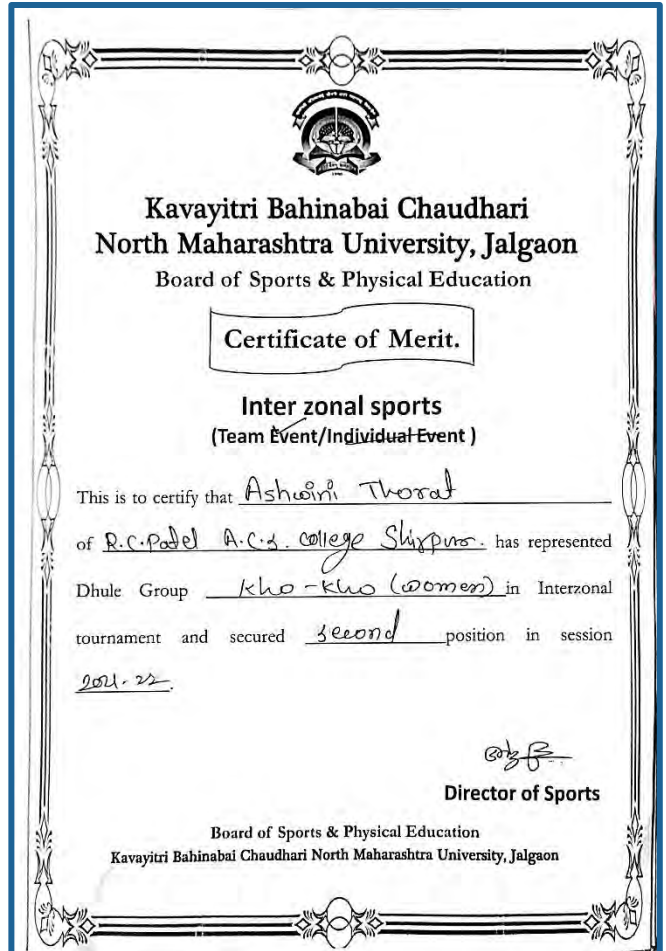 Kavayitri Bahinabai Chaudhari
North Maharashtra University, Jalgaon
Board of Sports & Physical Education
Certificate of Merit.
Inter zonal sports
(Team Event/Individual Event )
This is to certify that Ashwini Thorat
of R.C.Patel A.C.S. college Shirpur. has represented
Dhule Group Kho-Kho (women) in Interzonal
tournament and secured second position in session
2021-22.
Director of Sports
Board of Sports & Physical Education
Kavayitri Bahinabai Chaudhari North Maharashtra University, Jalgaon